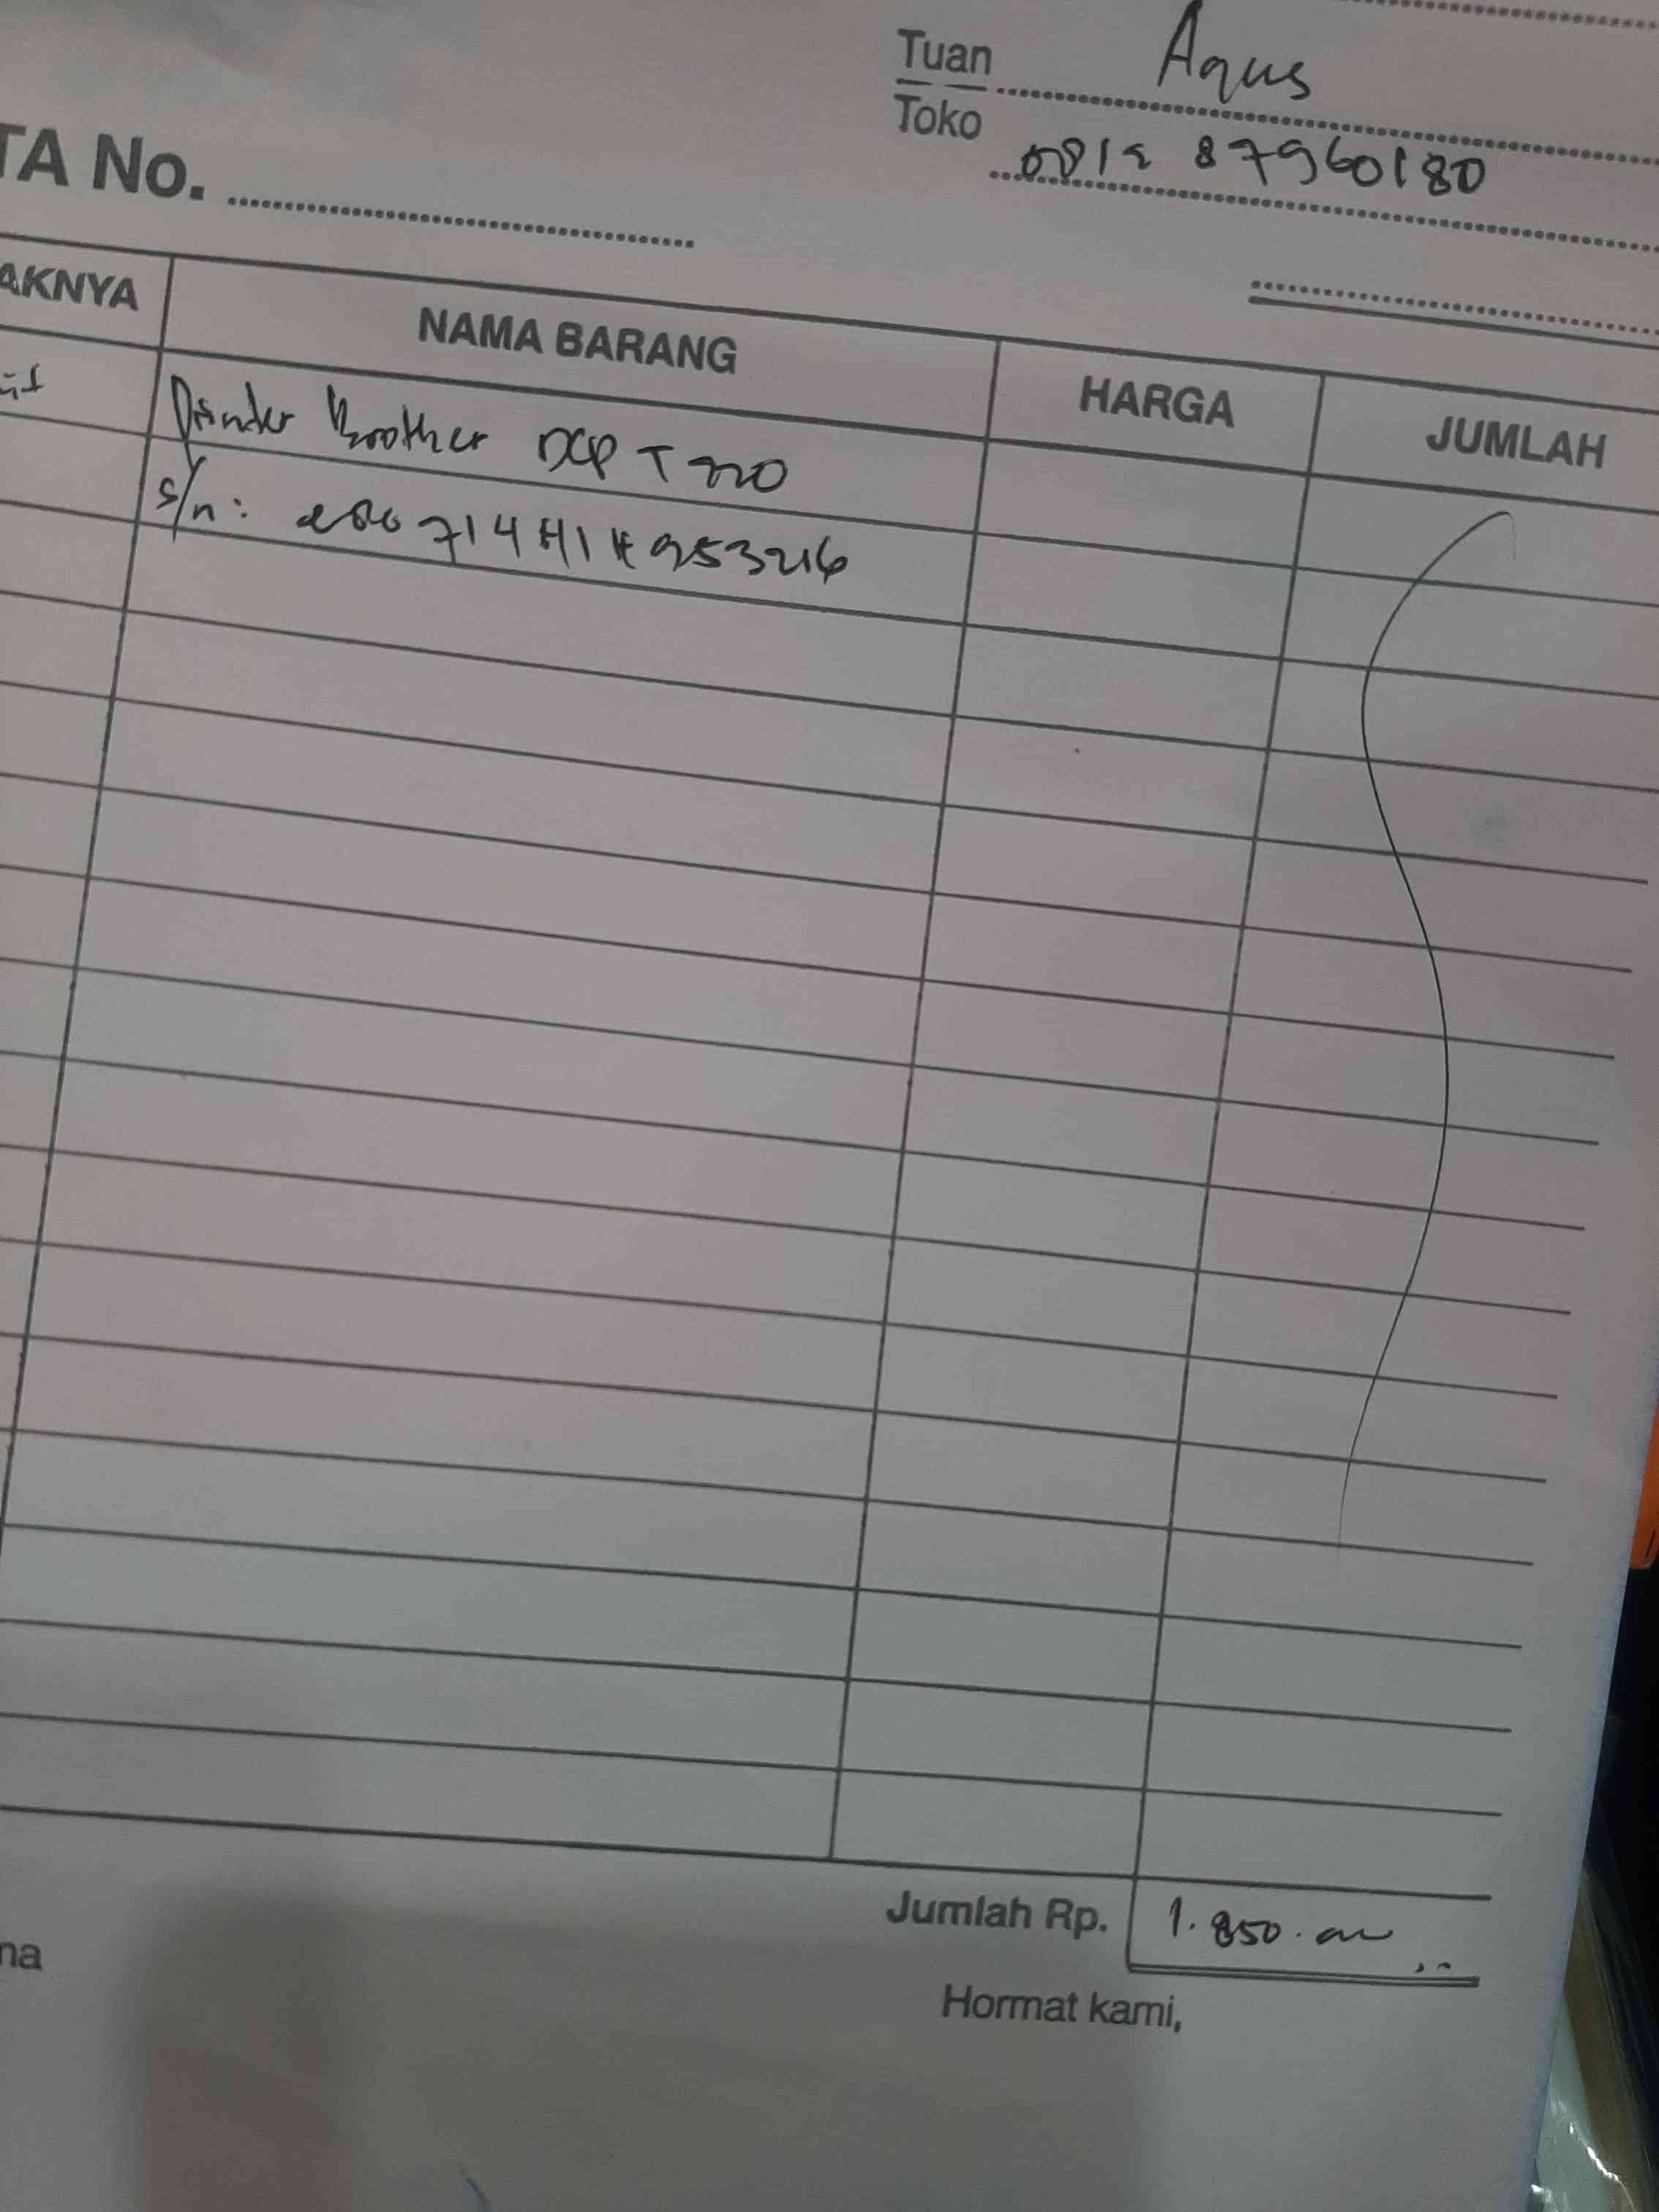 Tuan Agus
Toko 0812 87960180
TA No.
AKNYA NAMA BARANG HARGA JUMLAH
Printer Brother DCP T220
s/n:
Jumlah Rp. 1.850.000
na
Hormat kami,